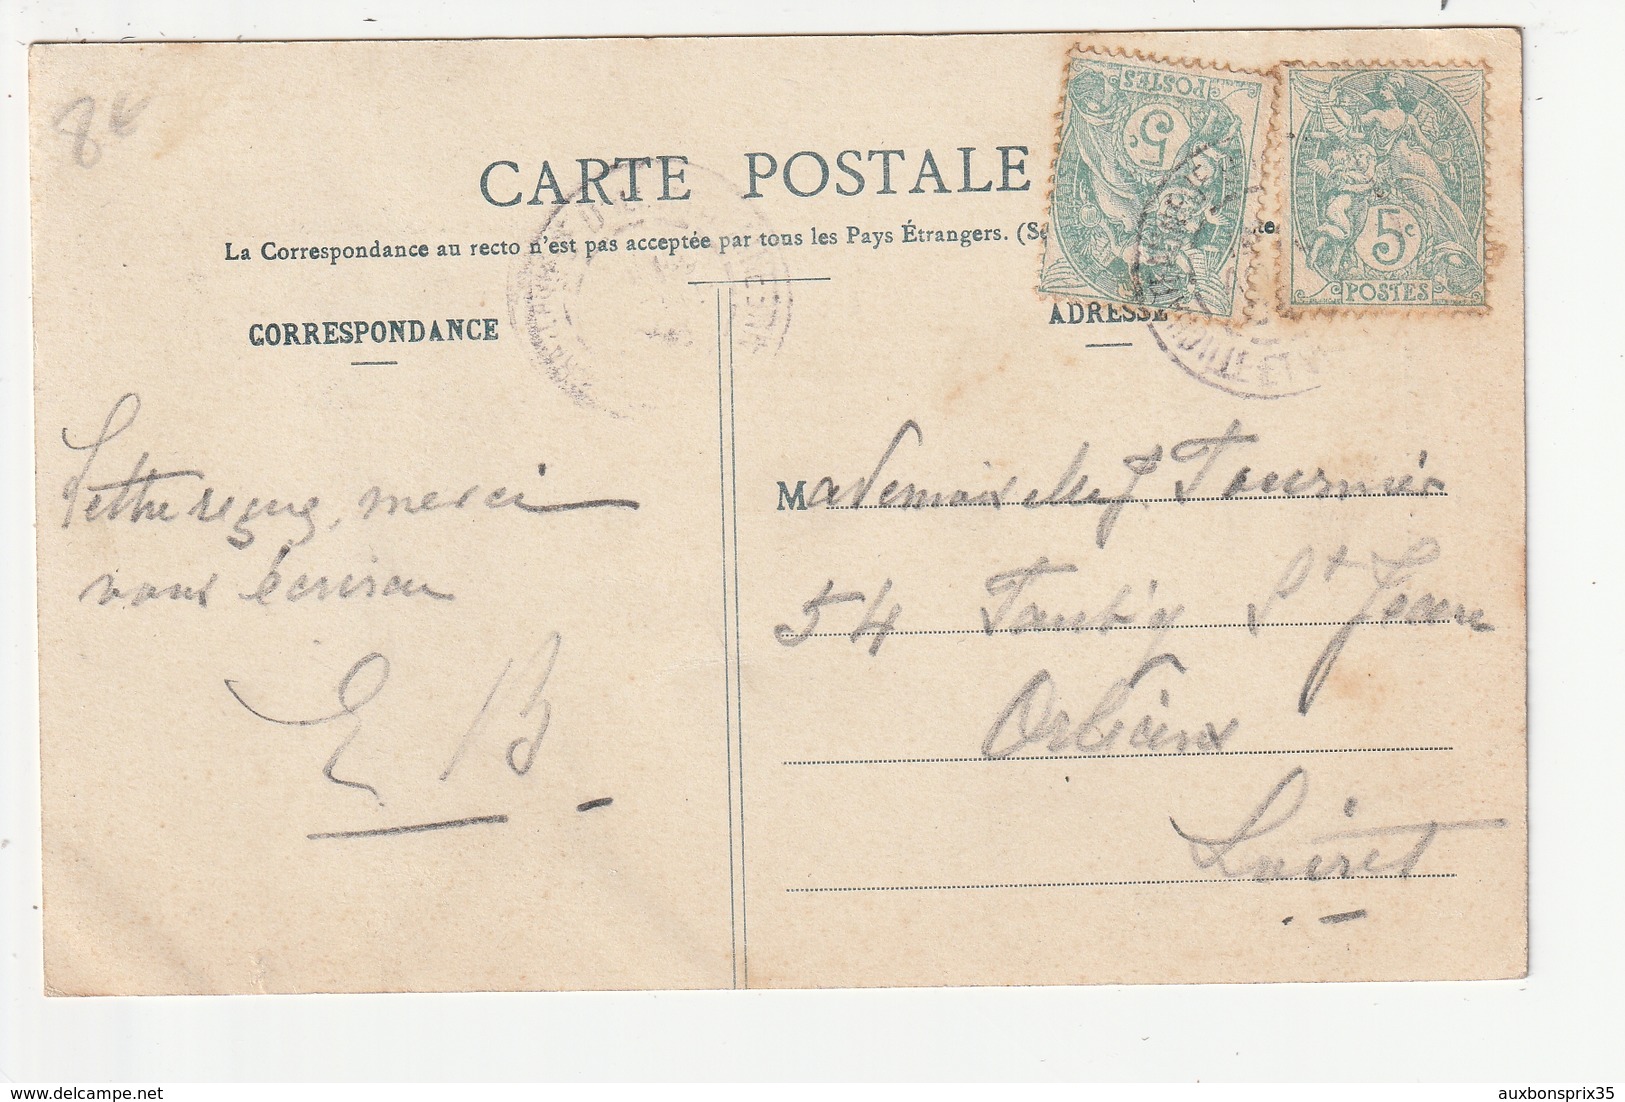 8€
CARTE POSTALE
La Correspondance au recto n'est pas acceptée par tous les Pays Étrangers. (Se
te.
CORRESPONDANCE
ADRESSE
POSTES
5c
5c
POSTES
Lettre reçue, merci
vous écrirai
E B
Mademoiselle J. Tournier
54 Faubg St Jean
Orléans
Loiret
delcampe.net
auxbonsprix35